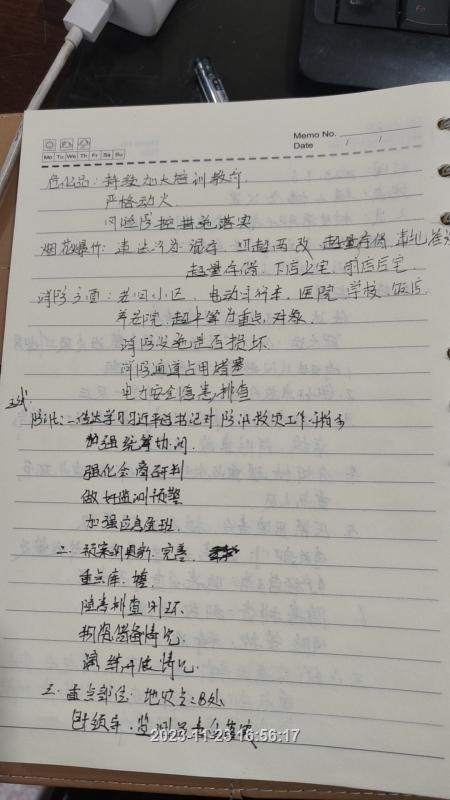 Memo No.
Mo Tu We Th Fr Sa Su
Date / /
危化品：持续加大培训教育
严格动火
风险防控措施落实
烟花爆竹：违法 超量存储
超量存储、下店上宅、前店后宅
消防方面：老旧小区、电动自行车、医院、学校、饭店
养老院、超市等为重点对象
消防设施是否损坏
消防通道占用堵塞
电力安全隐患排查
防汛：一传达学习习近平总书记对防汛救灾工作指示
加强统筹协调
强化会商研判
做好监测预警
加强应急值班
二、预案的更新、完善
重点库、塘
隐患排查闭环
物资储备情况
演练开展情况
三、重点部位：地灾点28处
监测员
2023-11-25 16:56:17